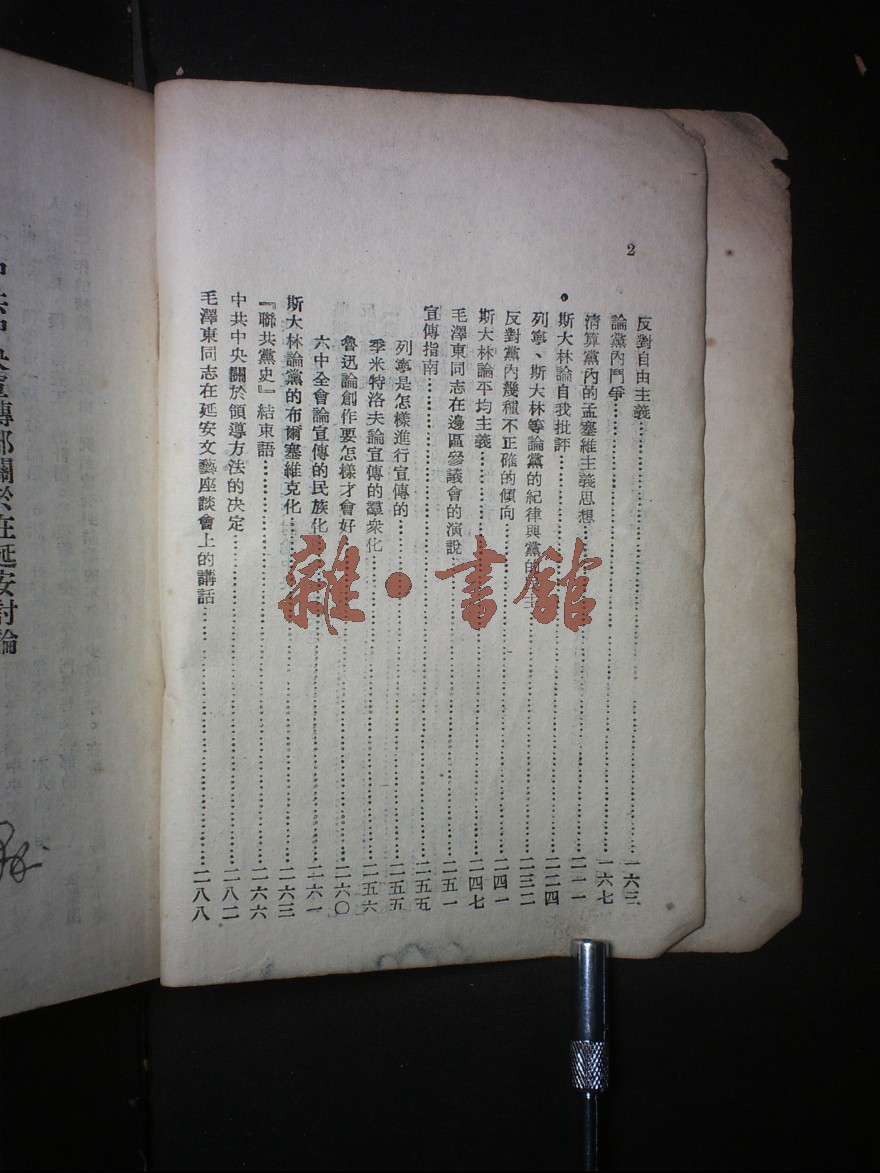 2
反對自由主義……一六三
論黨內鬥爭……一六七
清算黨內的孟塞維主義思想……二一一
斯大林論自我批評……二二四
列寧、斯大林等論黨的紀律與黨的民主……二三二
反對黨內幾種不正確的傾向……二四一
斯大林論平均主義……二四七
毛澤東同志在邊區參議會的演說……二五一
宣傳指南……二五五
列寧是怎樣進行宣傳的……二五五
季米特洛夫論宣傳的羣衆化……二五六
魯迅論創作要怎樣才會好……二六〇
六中全會論宣傳的民族化……二六一
斯大林論黨的布爾塞維克化……二六三
『聯共黨史』結束語……二六六
中共中央關於領導方法的决定……二八二
毛澤東同志在延安文藝座談會上的講話……二八八
中共中央宣傳部關於在延安討論
雜·書館